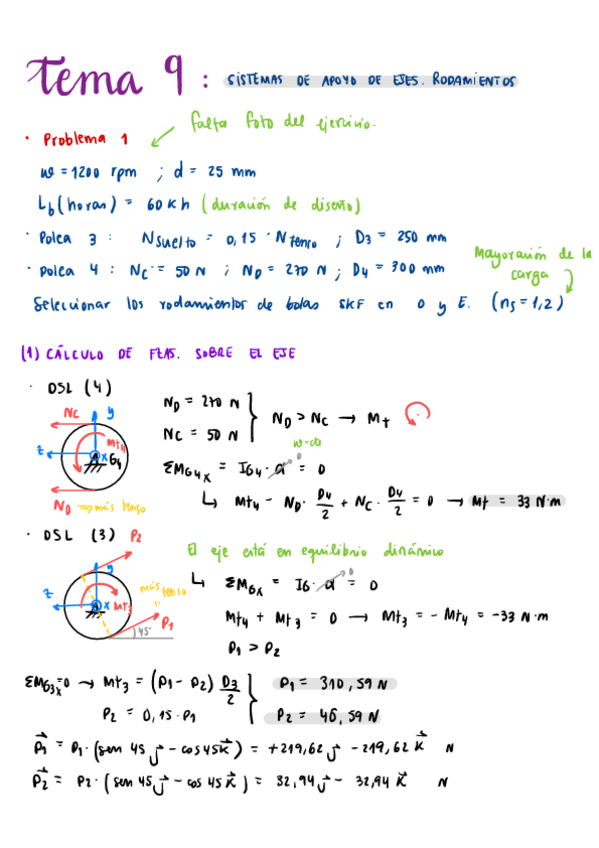 Tema 9: SISTEMAS DE APOYO DE EJES. RODAMIENTOS
falta foto del ejercicio.
· Problema 1
w = 1200 rpm ; d = 25 mm
Lb (horas) = 60 K h (duración de diseño)
· Polea 3 : Nsuelto = 0,15 · Ntenso ; D3 = 250 mm
· Polea 4 : NC = 50 N ; ND = 270 N ; D4 = 300 mm
Mayoración de la carga
Seleccionar los rodamientos de bolas SKF en O y E. (ns = 1,2)
(1) CÁLCULO DE FZAS. SOBRE EL EJE
· DSL (4)
NC y
z Mt4 x G4
ND ⇒ más tenso
ND = 270 N
NC = 50 N
ND > NC → Mt
w=cte
ΣMG4x = IG4 · α = 0
↳ Mt4 - ND · D4/2 + NC · D4/2 = 0 → Mt = 33 N·m
· DSL (3) P2
y
z x Mt3
más tenso
P1
45°
El eje está en equilibrio dinámico
↳ ΣMGx = IG · α = 0
Mt4 + Mt3 = 0 → Mt3 = - Mt4 = -33 N·m
P1 > P2
ΣMG3x = 0 → Mt3 = (P1 - P2) D3/2
P2 = 0,15 · P1
P1 = 310,59 N
P2 = 46,59 N
P1 = P1 · (sen 45 j - cos 45 k) = +219,62 j - 219,62 k N
P2 = P2 · (sen 45 j - cos 45 k) = 32,94 j - 32,94 k N